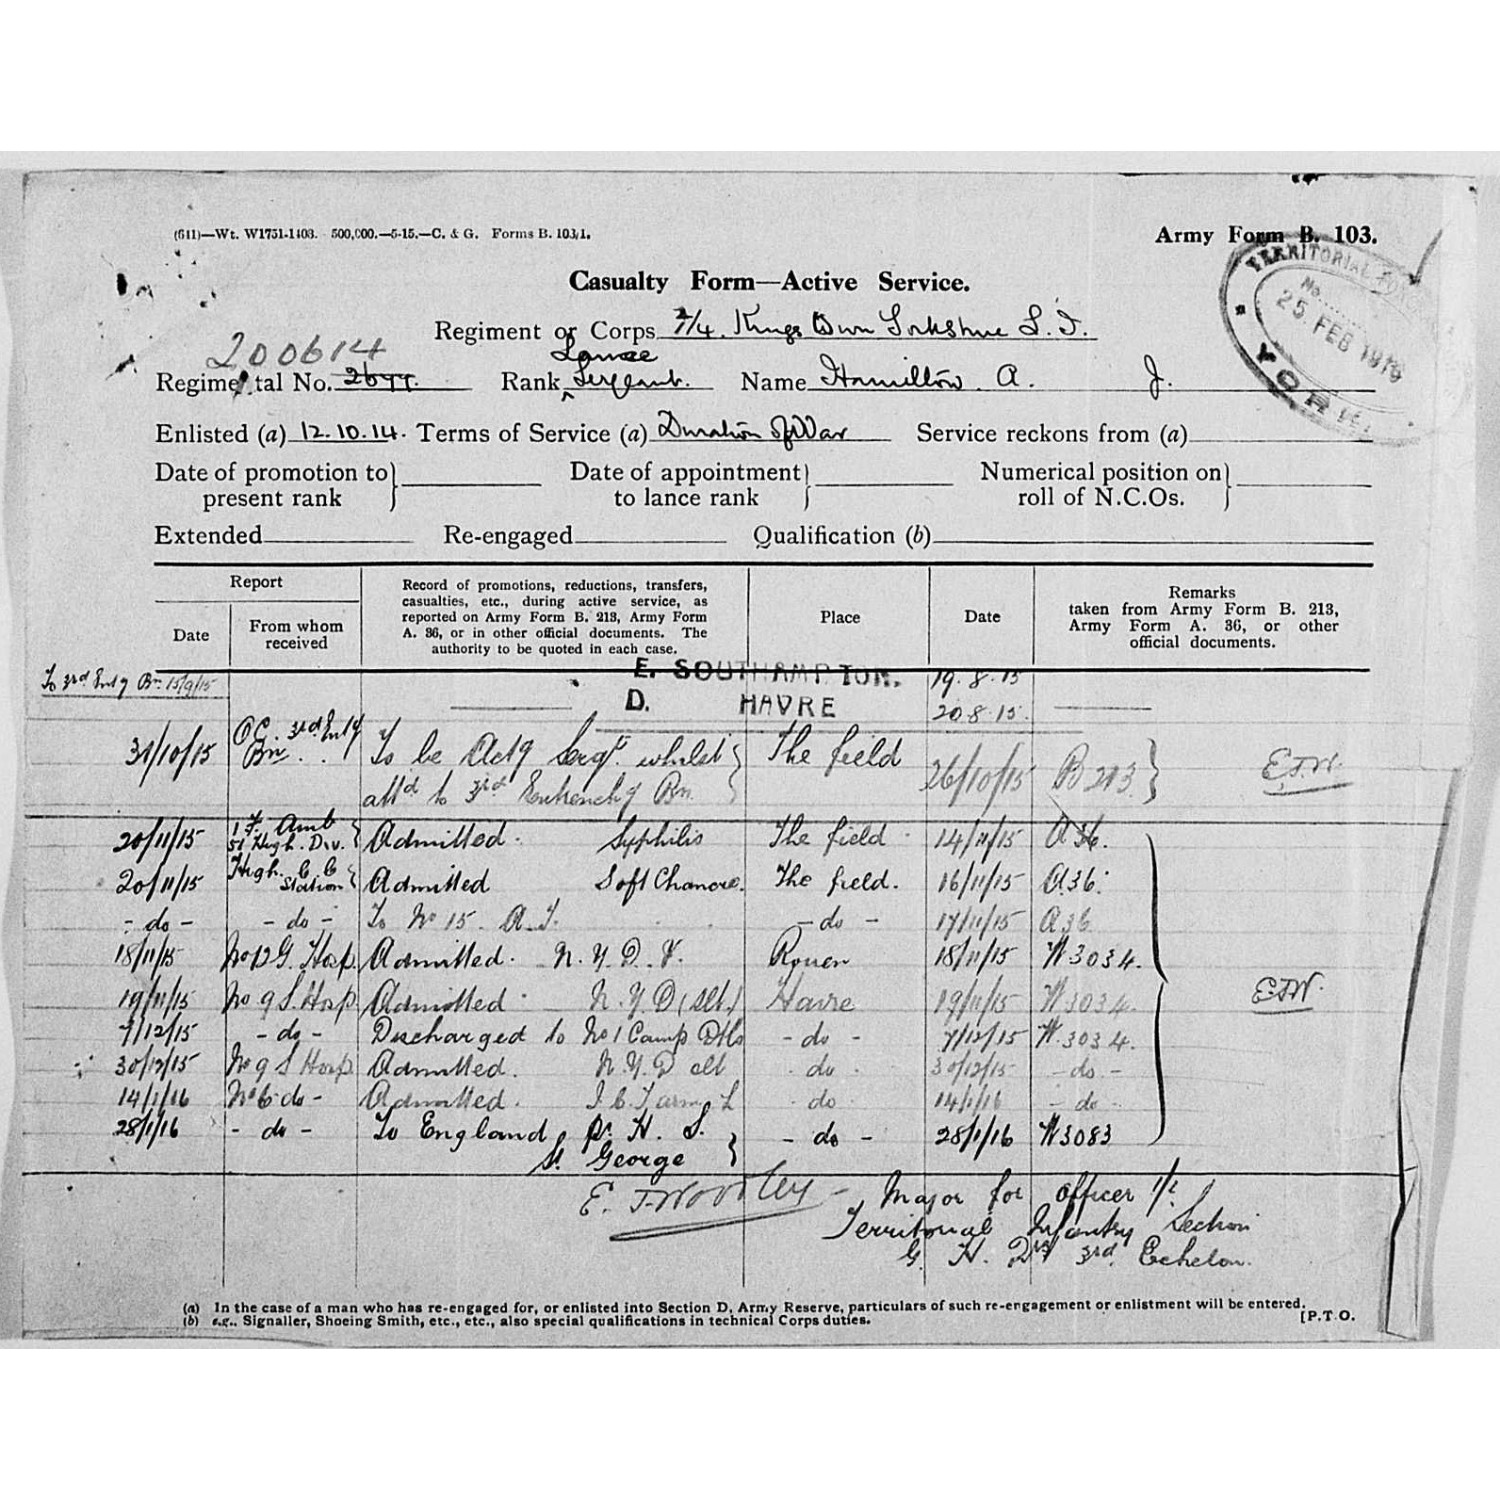 (641)—Wt. W1751-1403. 500,000.—5-15.—C. & G. Forms B. 103/1.
Army Form B. 103.
TERRITORIAL
No.
25 FEB 1919
YORK.
Casualty Form—Active Service.
Regiment or Corps /4. Kings Own Yorkshire L. I.
200614 Lance
Regimental No. Rank Sergeant. Name Hamilton. A. J.
Enlisted (a) 12.10.14. Terms of Service (a) Duration of War Service reckons from (a)
Date of promotion to present rank } Date of appointment to lance rank } Numerical position on roll of N.C.Os. }
Extended Re-engaged Qualification (b)
Report
Date
From whom received
Record of promotions, reductions, transfers,
casualties, etc., during active service, as
reported on Army Form B. 213, Army Form
A. 36, or in other official documents. The
authority to be quoted in each case.
Place
Date
Remarks
taken from Army Form B. 213,
Army Form A. 36, or other
official documents.
To 3rd Entg Bn. 15/9/15
E. SOUTHAMPTON. 19.8.15
D. HAVRE 20.8.15.
31/10/15 O.C. 3rd Entg Bn. To be Actg Sergt. whilst The field 26/10/15 B 213 E.J.W.
attd to 3rd Entrenchg Bn.
20/11/15 1 F. Amb 51 High. Div. Admitted. Syphilis The field 14/11/15 A36.
20/11/15 High. C C Station Admitted Soft Chancre. The field. 16/11/15 A36.
- do - - do - To No 15. A.T. - do - 17/11/15 A36
18/11/15 No 12 G. Hosp. Admitted. N. Y. D. V. Rouen 18/11/15 W3034.
19/11/15 No 9 S. Hosp. Admitted. N. Y. D (slt.) Havre 19/11/15 W3034. E.J.W.
7/12/15 - do - Discharged to No 1 Camp - do - 7/12/15 W.3034.
30/12/15 No 9 S Hosp. Admitted. N. Y. D slt - do - 30/12/15 - do -
14/1/16 No 6 - do - Admitted. I.C.T. arm L - do - 14/1/16 - do -
28/1/16 - do - To England H. S. - do - 28/1/16 W3083
St. George
E. J. Woolley - Major for Officer i/c
Territorial Infantry Section
G. H. Qrs 3rd. Echelon.
(a) In the case of a man who has re-engaged for, or enlisted into Section D, Army Reserve, particulars of such re-engagement or enlistment will be entered.
(b) e.g., Signaller, Shoeing Smith, etc., etc., also special qualifications in technical Corps duties.
[P.T.O.